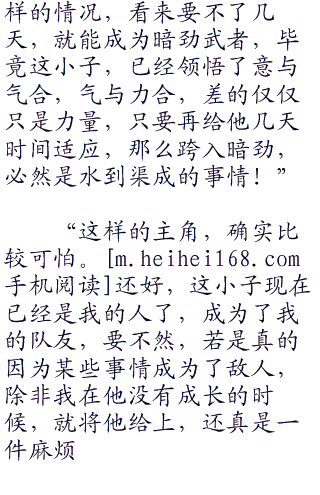 样的情况，看来要不了几
天，就能成为暗劲武者，毕
竟这小子，已经领悟了意与
气合，气与力合，差的仅仅
只是力量，只要再给他几天
时间适应，那么跨入暗劲，
必然是水到渠成的事情！”
“这样的主角，确实比
较可怕。[m.heihei168.com
手机阅读]还好，这小子现在
已经是我的人了，成为了我
的队友，要不然，若是真的
因为某些事情成为了敌人，
除非我在他没有成长的时
候，就将他给上，还真是一
件麻烦